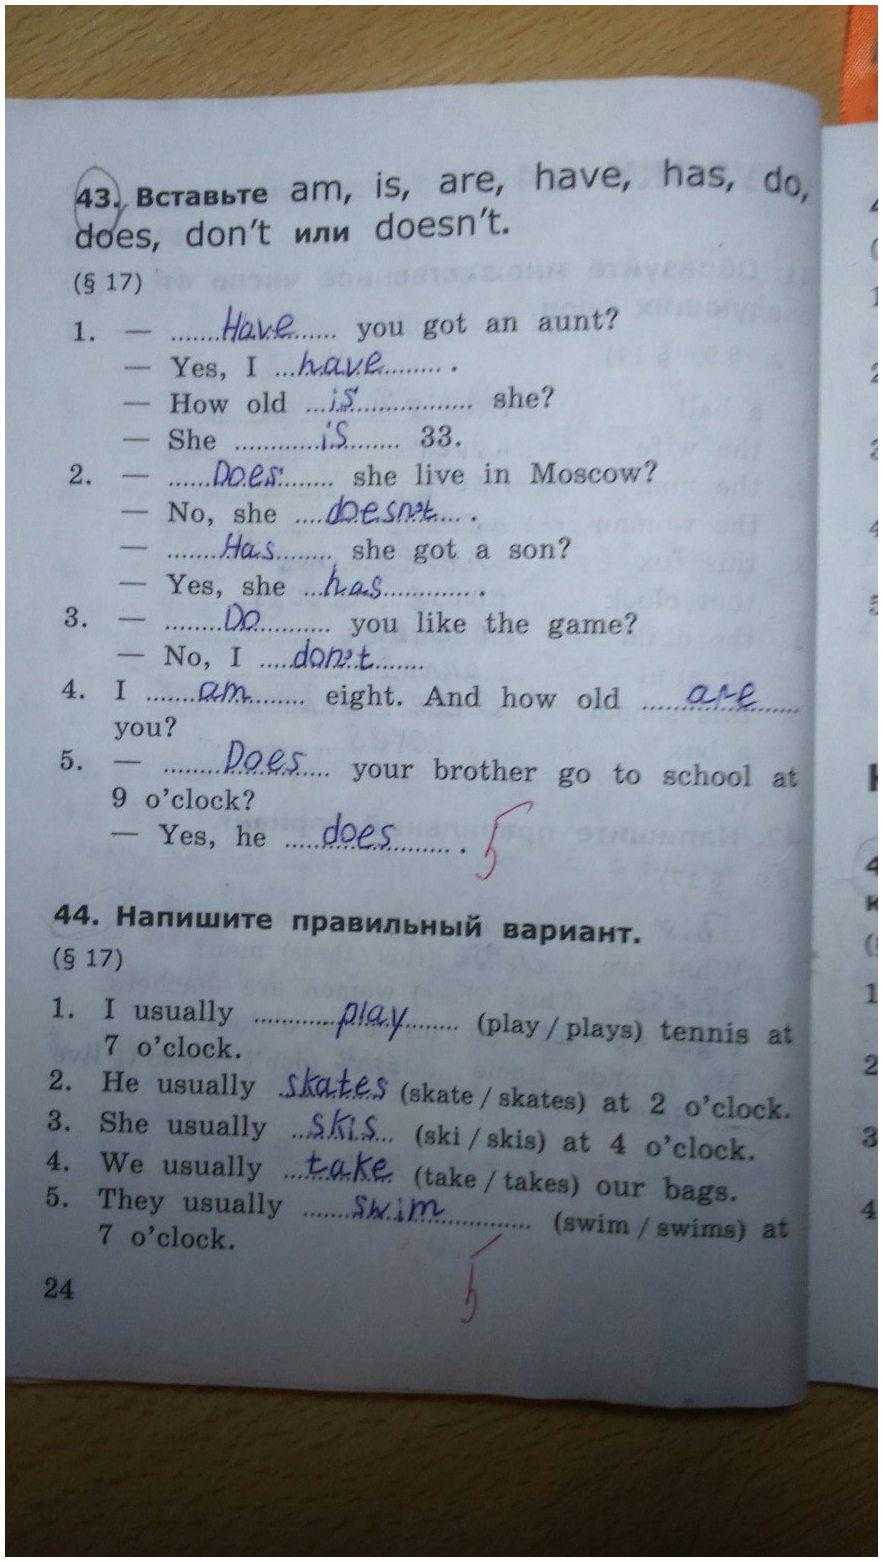 43. Вставьте am, is, are, have, has, do,
does, don't или doesn't.
(§ 17)
1. — ........Have...... you got an aunt?
— Yes, I ...have........ .
— How old ...is................. she?
— She ............is........ 33.
2. — ......Does........ she live in Moscow?
— No, she ....doesn't.... .
— ........Has........ she got a son?
— Yes, she ...has............. .
3. — ........Do.......... you like the game?
— No, I .....don't.......
4. I .......am.......... eight. And how old ......are......
you?
5. — ........Does... your brother go to school at
9 o'clock?
— Yes, he ......does......... . 5
44. Напишите правильный вариант.
(§ 17)
1. I usually ............play........ (play / plays) tennis at
7 o'clock.
2. He usually skates (skate / skates) at 2 o'clock.
3. She usually ..skis... (ski / skis) at 4 o'clock.
4. We usually ...take (take / takes) our bags.
5. They usually .......swim............ (swim / swims) at
7 o'clock.
5
24